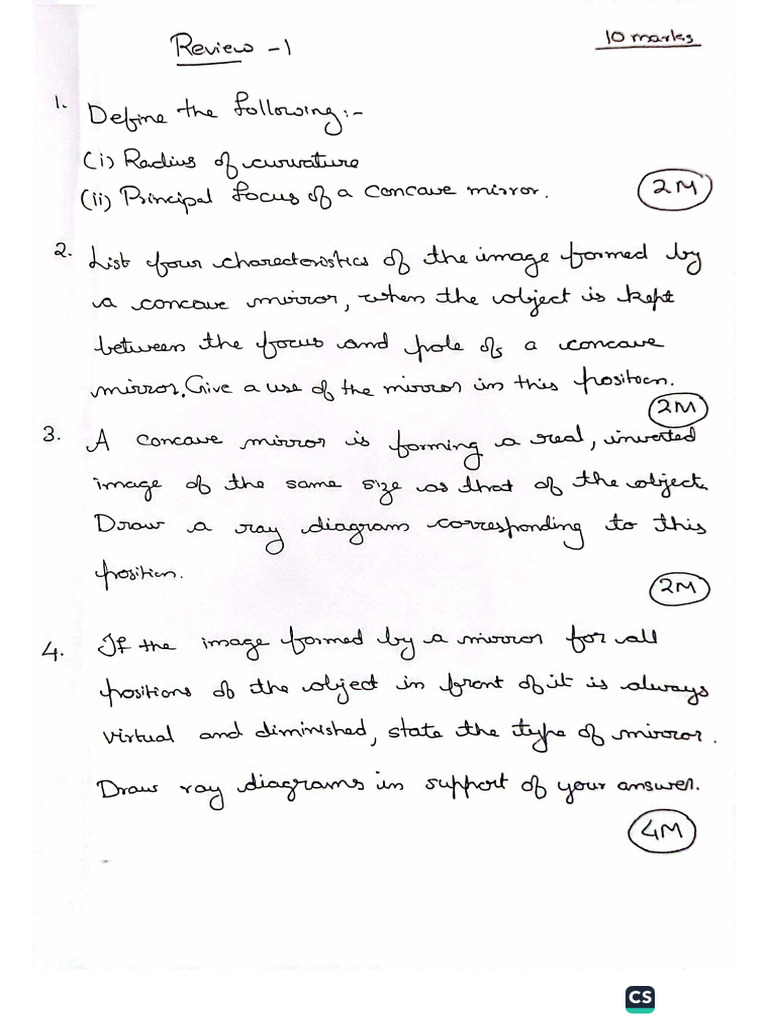 Review -1
10 marks
1. Define the following:-
(i) Radius of curvature
(ii) Principal focus of a concave mirror.
2M
2. List four charecteristics of the image formed by
a concave mirror, when the object is kept
between the focus and pole of a concave
mirror. Give a use of the mirror in this position.
2M
3. A concave mirror is forming a real, inverted
image of the same size as that of the object.
Draw a ray diagram corresponding to this
position.
2M
4. If the image formed by a mirror for all
positions of the object in front of it is always
virtual and diminished, state the type of mirror.
Draw ray diagrams in support of your answer.
4M
CS